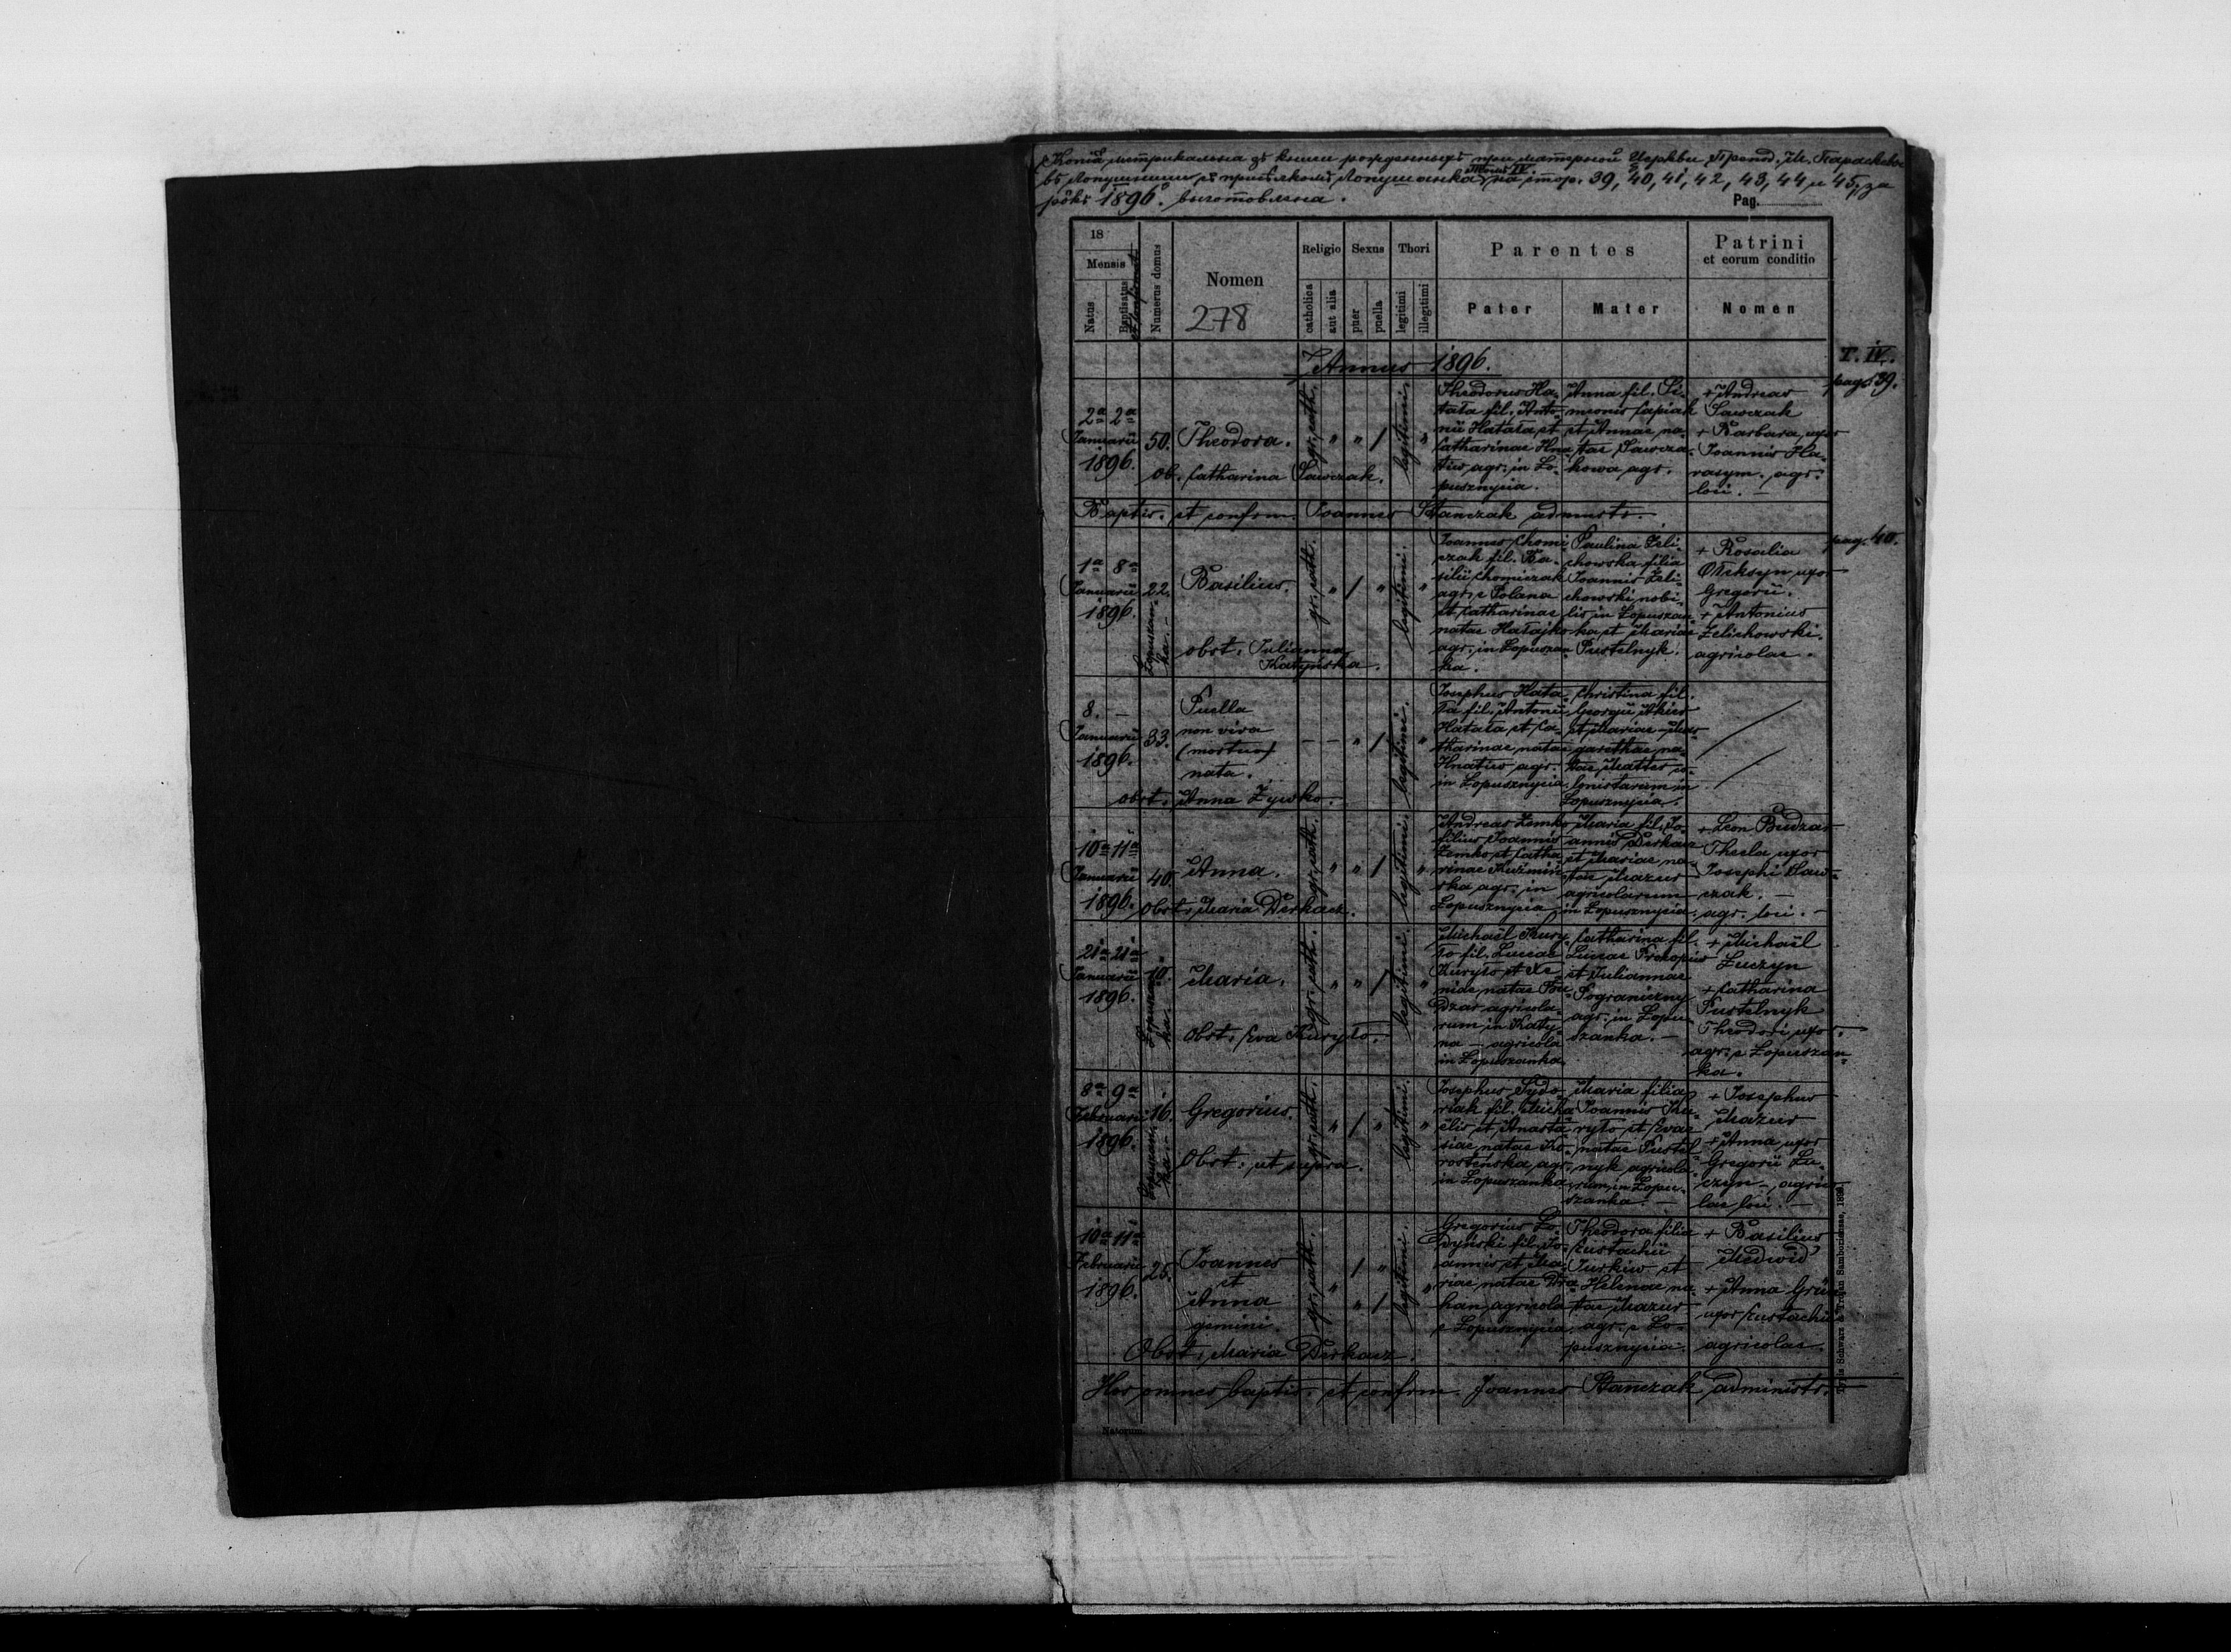 Копія метрикальна зъ книги рожденныхъ при матерной Церкви Препод. М. Параскевы
въ Лопушници съ присѣлкомъ Лопушанка Томъ IV. на стор. 39, 40, 41, 42, 43, 44 и 45, за
рôкъ 1896. выготовлена.
Pag.
18
Mensis
Natus
Baptisatus
et confirmat.
Numerus domus
Nomen
278
Religio
catholica
aut alia
Sexus
puer
puella
Thori
legitimi
illegitimi
Parentes
Pater
Mater
Patrini
et eorum conditio
Nomen
Annus 1896.
T. IV.
pag. 39.
2a 2a
Januarii
1896.
50.
Theodora.
ob. Catharina Sawczak.
gr. cath.
" " /
legitimi.
"
Theodorus Ha-
tała fil. Anto-
nii Hatała et
Catharinae Hna-
tiw agr. in Ło-
pusznycia.
Anna fil. Si-
meonis Capiak
et Annae na-
tae Sawcza-
kowa agr.
+ Andreas
Sawczak
+ Barbara uxor
Joannis Ha-
rasym. agr.
loci. —
Baptis. et confirm. Joannes Stanczak administr.
pag. 40.
1a 8a
Januarii
1896.
22.
Łopuszan-
ka. —
Basilius.
obst. Julianna
Katyńska.
gr. cath.
" / "
legitimi.
"
Joannes Chomi-
czak fil. Ba-
silii Chomiczak
agr. e Polana
et Catharinae
natae Hatajko
agr. in Łopuszan-
ka.
Paulina Zeli-
chowska filia
Joannis Zeli-
chowski nobi-
lis in Łopuszan-
ka et Mariae
Pustelnyk.
+ Rosalia
Ołeksyn uxor
Gregorii.
+ Antonius
Zelichowski.
agricolae.
8. —
Januarii
1896.
33.
Puella
non viva
(mortua)
nata.
obst. Anna Żywko.
— — " /
legitimi.
"
Josephus Hata-
ła fil. Antonii
Hatała et Ca-
tharinae natae
Hnatiw agr.
in Łopusznycia.
Christina fil.
Georgii
et Mariae Mar-
garethae na-
tae Matter co-
lonistarum in
Łopusznycia.
10a 11a
Januarii
1896.
40.
Anna.
obst. Maria Derkacz.
gr. cath.
" " /
legitimi.
"
Andreas Zemko
filius Joannis
Zemko et Catha-
rinae Kuźmiń-
ska agr. in
Łopusznycia
Maria fil. Jo-
annis Derkacz
et Mariae na-
tae Mazur
agricolarum
in Łopusznycia.
+ Leon Budzar
Thecla uxor
Josephi Saw-
czak. —
agr. loci. —
21a 21a
Januarii
1896.
10.
Łopuszan-
ka.
Maria.
Obst. Eva Kuryło.
gr. cath.
" " /
legitimi.
"
Michaël Kury-
ło fil. Lucae
Kuryło et Xe-
niae natae Bu-
dzar agricola-
rum in Katy-
na — agricola
in Łopuszanka.
Catharina fil.
Lucae Prokopiw
et Juliannae
Pograniczny
agr. in Łopu-
szanka. —
+ Michaël
Łuczyn
+ Catharina
Pustelnyk
Theodori uxor.
agr. e Łopuszan-
ka.
8a 9a
Februarii
1896.
16.
Łopuszan-
ka —
Gregorius.
Obst. ut supra.
gr. cath.
" / "
legitimi.
"
Josephus Sydo-
riak fil. Micha-
ëlis et Anasta-
siae natae Ko-
rosteńska agr.
in Łopuszanka.
Maria filia
Joannis Ku-
ryło et Evae
natae Pustel-
nyk agricola-
rum in Łopu-
szanka. —
+ Josephus
Mazur
+ Anna uxor
Gregorii Łu-
czyn —, agrico-
lae loci. —
10a 11a
Februarii
1896.
25.
Joannes
et
Anna
gemini.
Obst. Maria Derkacz.
gr. cath.
/ "
" " /
legitimi.
"
Gregorius Ło-
dyński fil. Jo-
annis et Ma-
riae natae Dra-
han, agricola
e Łopusznycia.
Theodora filia
Eustachii
Jurkiw et
Helenae na-
tae Mazur
agr. e Ło-
pusznycia.
+ Basilius
Medwid
+ Anna
uxor Eustachii
agricolae.
Hos omnes baptis. et confirm. Joannes Stanczak administr.
Natorum.
Typis Schwarz & Trojan Samboriense, 189